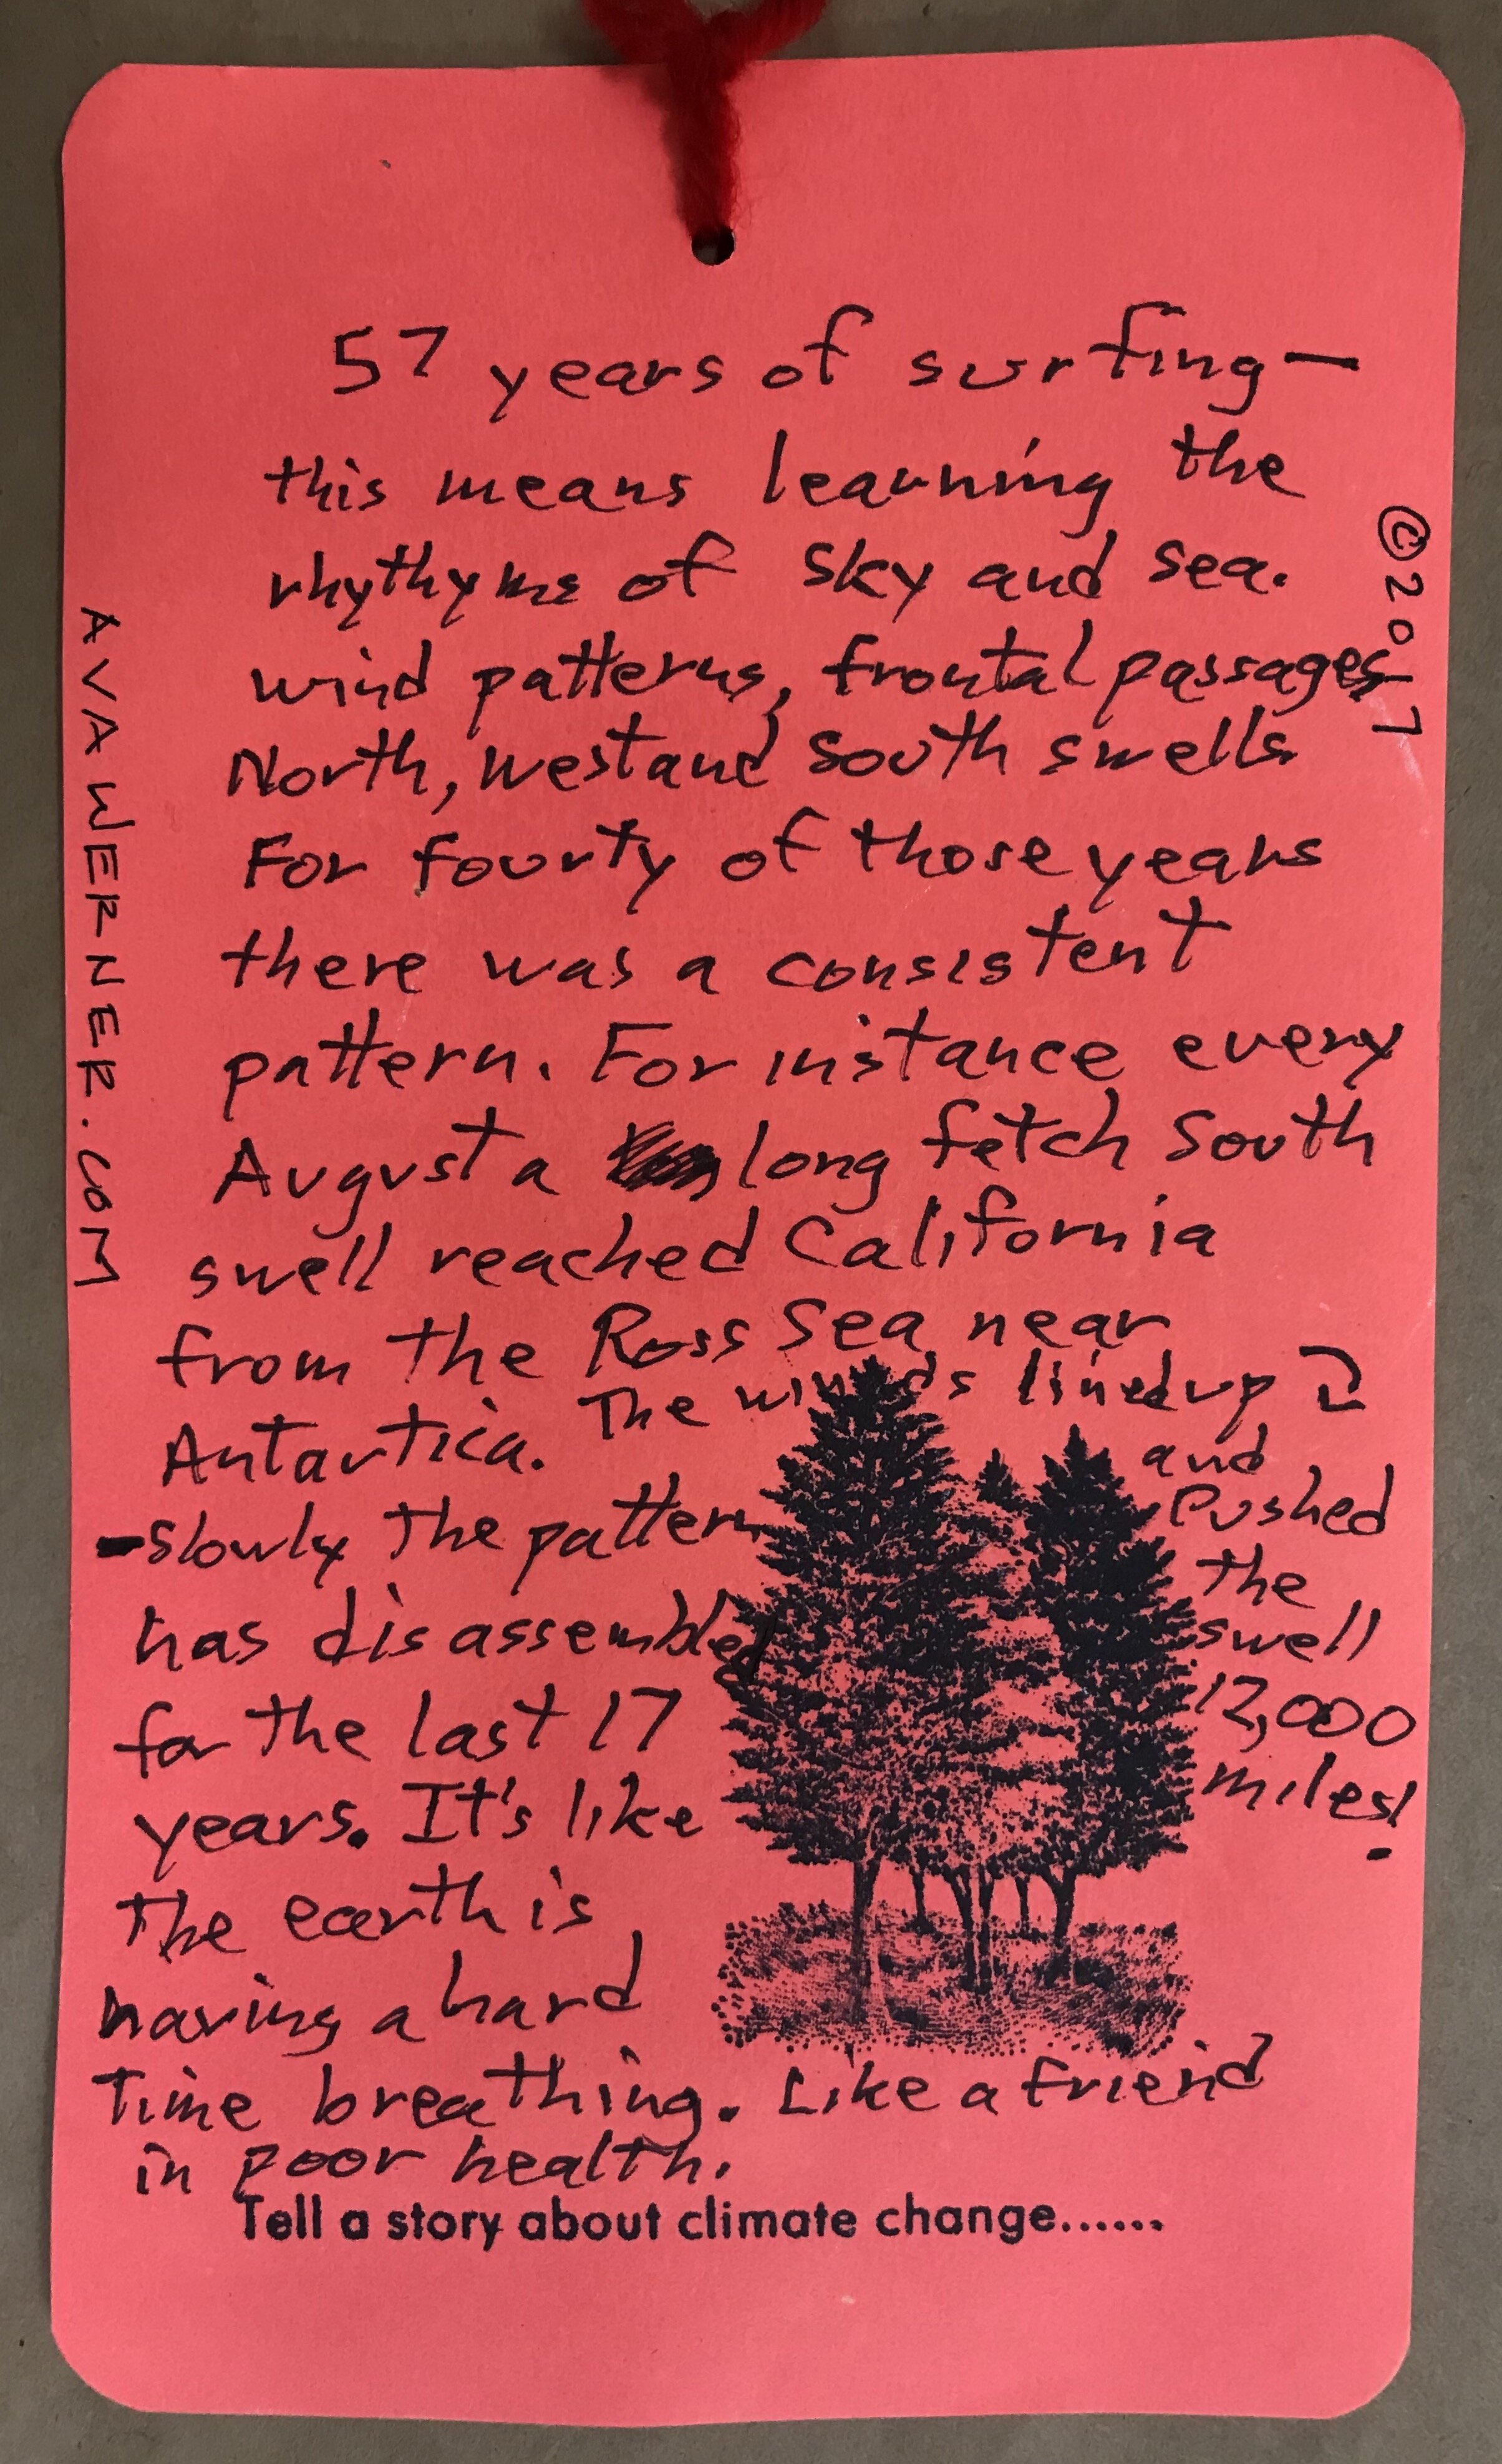 57 years of surfing—
this means learning the
rhythyms of sky and sea.
wind patterns, frontal passages
North, west and south swells
For fourty of those years
there was a consistent
pattern. For instance every
August a long fetch south
swell reached California
from the Ross Sea near
Antartica. The winds lined up
and
pushed
the
swell
12,000
miles!
-Slowly the pattern
has disassembled
for the last 17
years. It's like
the earth is
having a hard
Time breathing. Like a friend
in poor health.
Tell a story about climate change......
AVAWERNER.COM
©2017